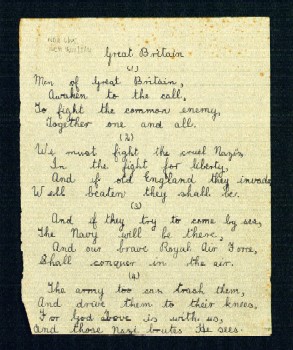 Great Britain
(1)
Men of Great Britain,
Awaken to the call,
To fight the common enemy,
Together one and all.
(2)
We must fight the cruel Nazis
In the fight for liberty,
And if old England they invade
Well beaten they shall be.
(3)
And if they try to come by sea,
The Navy will be there,
And our brave Royal Air Force,
Shall conquer in the air.
(4)
The army too can trash them,
And drive them to their knees.
For God above is with us,
And those Nazi brutes He sees.